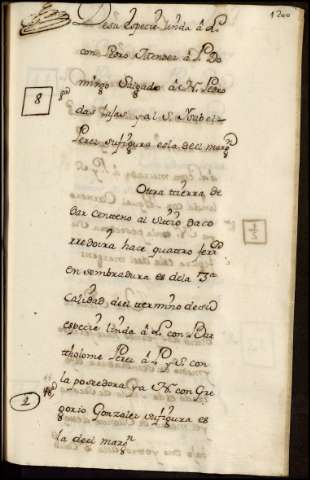 1200
Desu especie Linda â L.
con Pedro Mendez â P. Do
mingo Salgado â N. Pedro
8
das Casas ya l S. Ysabel
Perez su figura es la del marg.n
Otra tierra de
dar Centeno al sitio da co
rredoira hace quattro ferr.s
en sembradura es de la 3.a
Calidad, del termino de su
especie Linda â L. con Bar
ttholome Perez â P. y S. con
la poseedora ya N. con Gre
2
gorio Gonzalez su figura es
la del marg.n